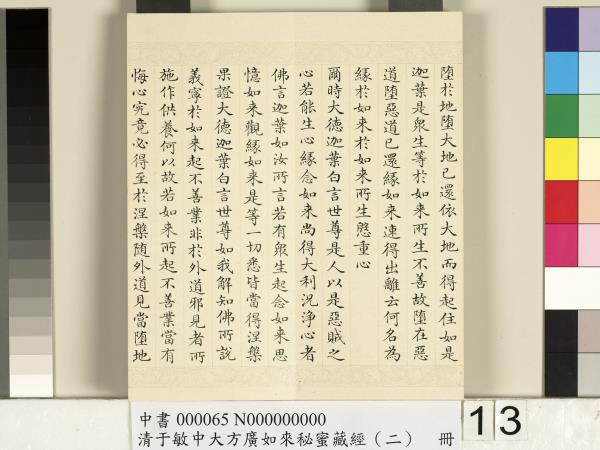 墮於地墮大地已還依大地而得起住如是
迦葉是衆生等於如來所生不善故墮在惡
道墮惡道已還緣如來速得出離云何名為
緣於如來於如來所生慇重心
爾時大德迦葉白言世尊是人以是惡賊之
心若能生心緣念如來尚得大利況淨心者
佛言迦葉如汝所言若有衆生起念如來思
憶如來觀緣如來是等一切悉皆當得涅槃
果證大德迦葉白言世尊如我解知佛所說
義寧於如來起不善業非於外道邪見者所
施作供養何以故若如來所起不善業當有
悔心究竟必得至於涅槃隨外道見當墮地
中書 000065 N000000000
清于敏中大方廣如來秘蜜藏經(二) 冊
13